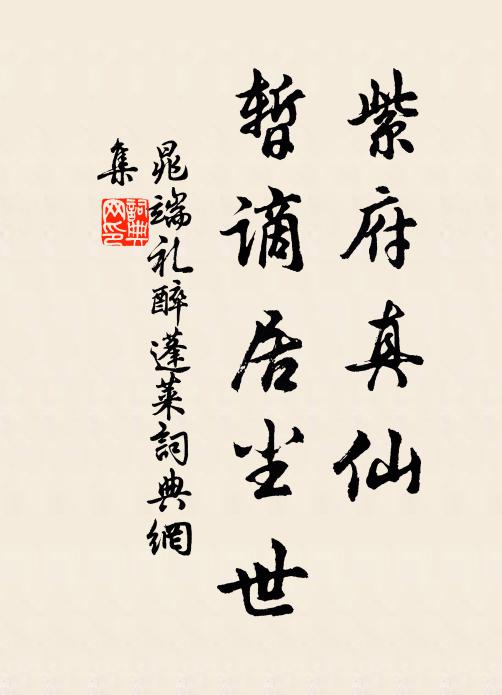 紫府真仙
暫谪居尘世
晁端礼醉蓬莱詞典網
集
詞典
网印